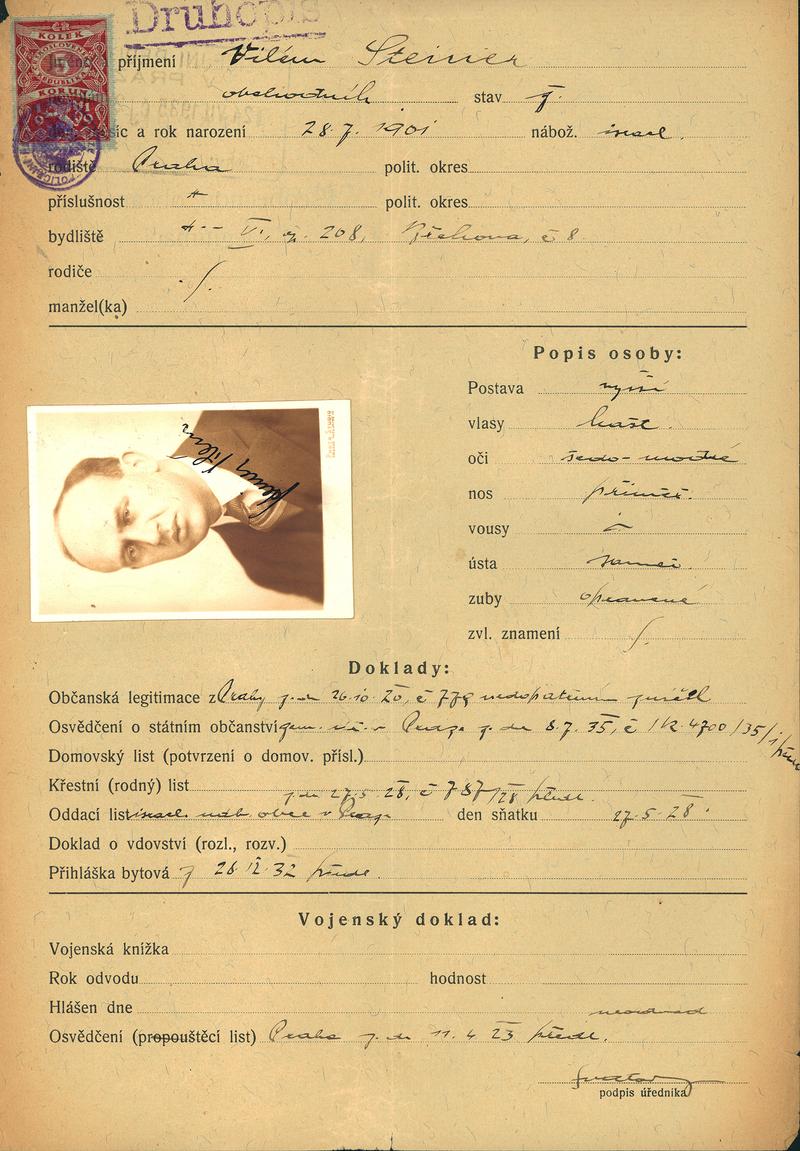 Druhopis
KOLEK
KORUNA
příjmení Vilém Steiner
obchodník stav ž.
měsíc a rok narození 28.7.1901 nábož. israel.
rodiště Praha polit. okres
příslušnost polit. okres
bydliště VI., čp. 208, Břehova, č 8
rodiče
manžel(ka)
Popis osoby:
Postava vyšší
vlasy
oči šedo-modré
nos přiměř.
vousy
ústa
zuby opravené
zvl. znamení
Doklady:
Občanská legitimace z Prahy z. dn 26.10.20, č 779 nedopatřením zničil
Osvědčení o státním občanství Praga z. dn 8.7.35, č 4700/35
Domovský list (potvrzení o domov. přísl.)
Křestní (rodný) list
z dn 27.5.28, č 787/28 předl.
Oddací list israel. náb. obce v Praze den sňatku 27.5.28
Doklad o vdovství (rozl., rozv.)
Přihláška bytová z 28 IX. 32 předl.
Vojenský doklad:
Vojenská knížka
Rok odvodu hodnost
Hlášen dne neodved
Osvědčení (propouštěcí list) Praha z. dn 11.4.23 předl.
podpis úředníka